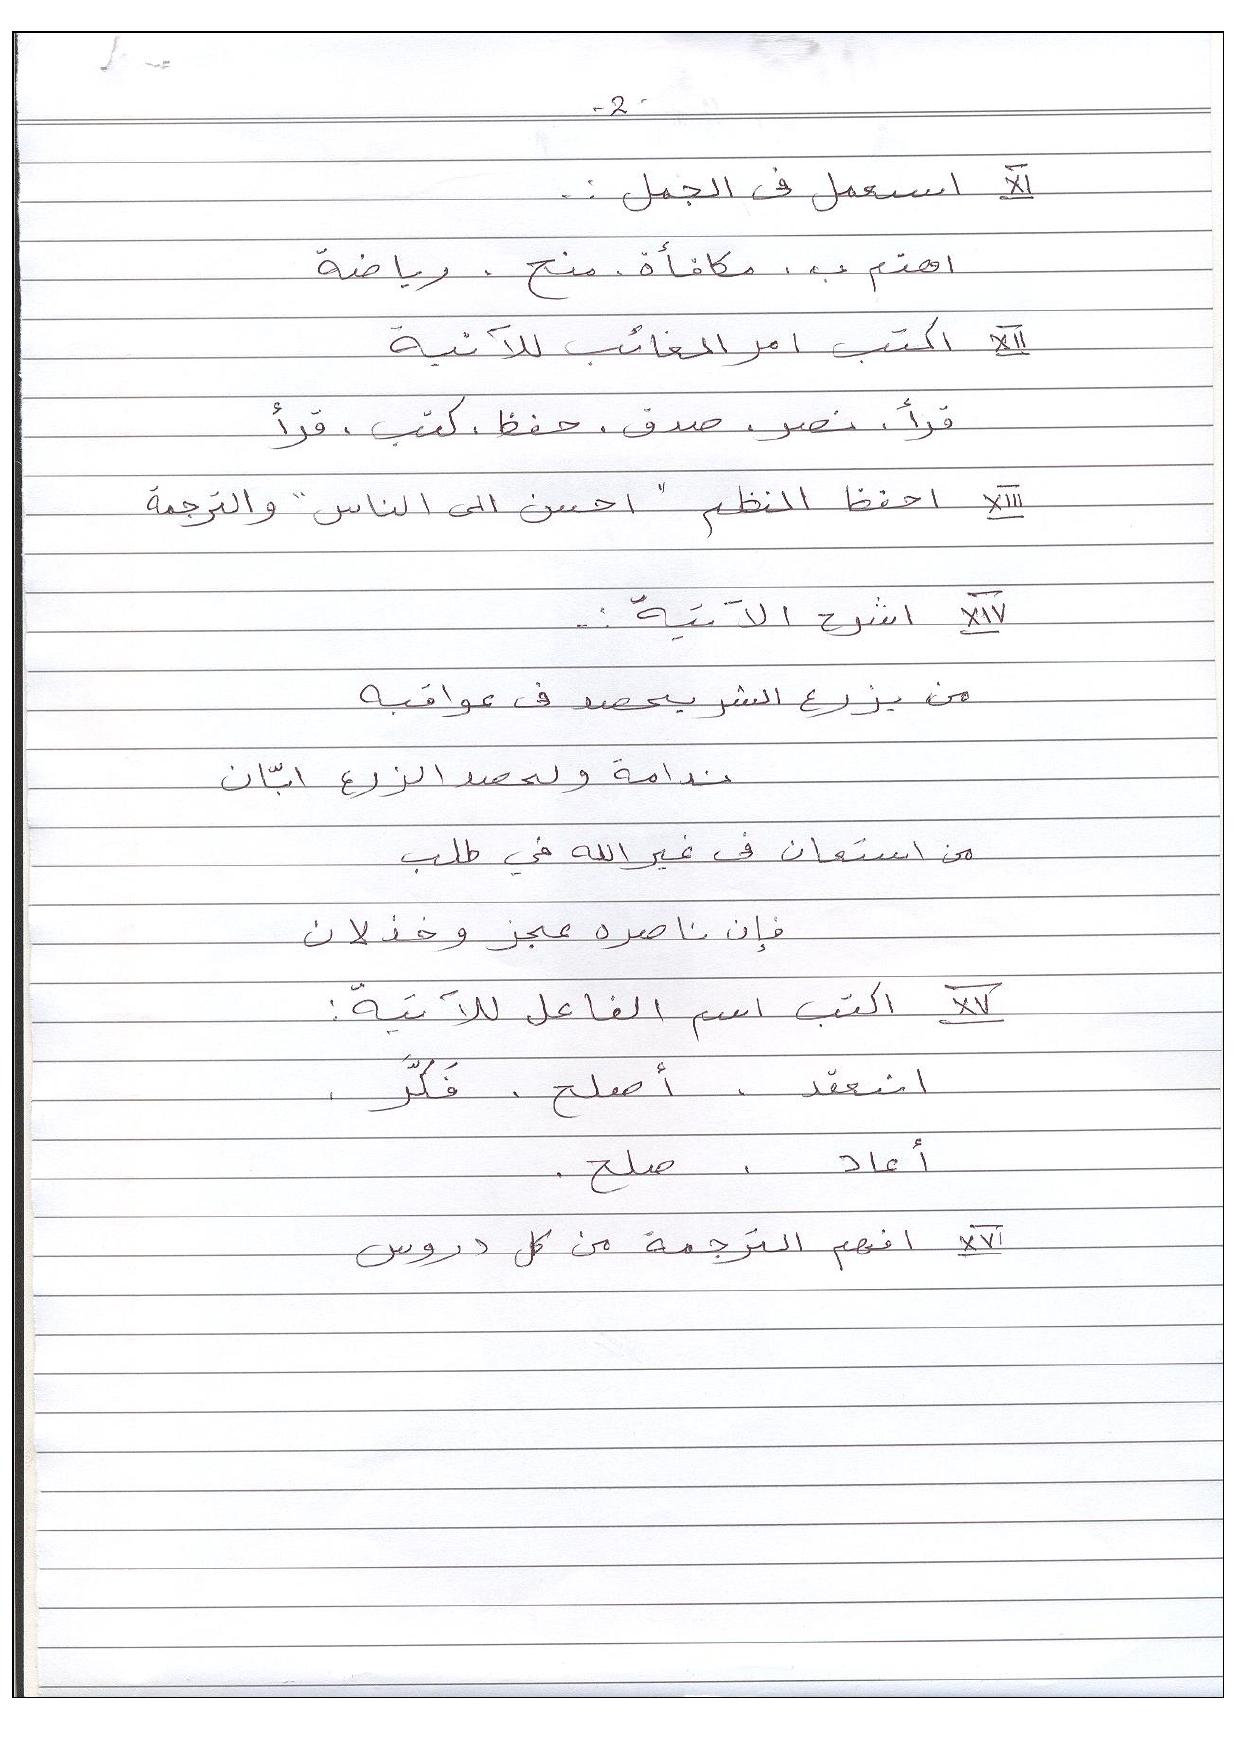 -2-
XI استعمل فى الجمل :-
اهتم ب، مكافأة، منح، رياضة
XII اكتب امر الغائب للآتية
قرأ، نصر، صدق، حفظ، كتب، قرأ
XIII احفظ النظم "احسن الى الناس" والترجمة
XIV اشرح الآتية :-
من يزرع الشر يحصد فى عواقبه
ندامة ولحصد الزرع ابّان
من استعان فى غير الله في طلب
فإن ناصره عجز وخذلان
XV اكتب اسم الفاعل للآتية :
انعقد ، أصلح ، فَكَّرَ ،
أعاد ، صلح .
XVI افهم الترجمة من كل دروس